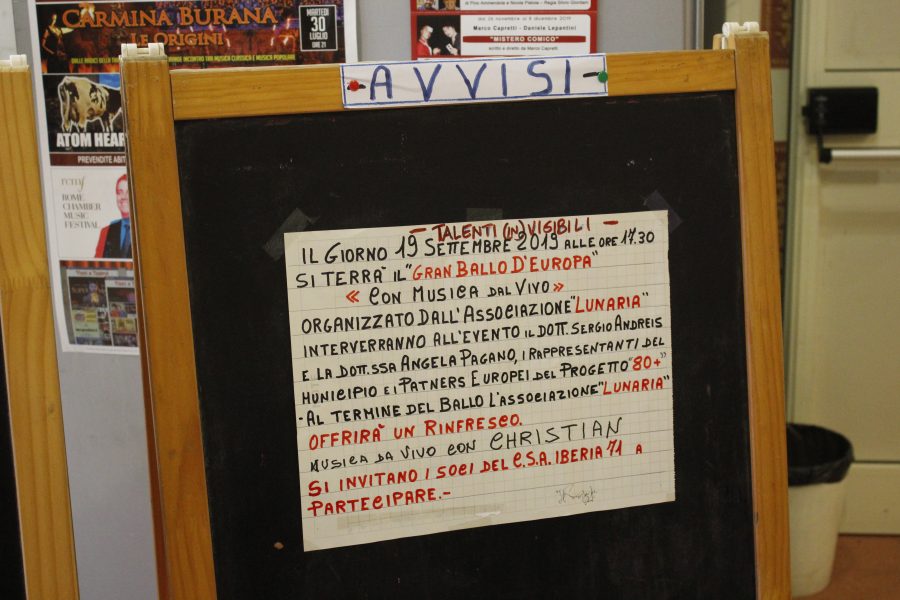 CARMINA BURANA
LE ORIGINI
MARTEDÌ
30
LUGLIO
ORE 21
Marco Capretti - Daniele Lepantini
"MISTERO COMICO"
scritto e diretto da Marco Capretti
ATOM HEAR
PREVENDITE ABIT
ROME
CHAMBER
MUSIC
FESTIVAL
AVVISI
- TALENTI (IN)VISIBILI -
IL GIORNO 19 SETTEMBRE 2019 ALLE ORE 17.30
SI TERRÀ IL "GRAN BALLO D'EUROPA"
« CON MUSICA DAL VIVO »
ORGANIZZATO DALL'ASSOCIAZIONE "LUNARIA"
INTERVERRANNO ALL'EVENTO IL DOTT. SERGIO ANDREIS
E LA DOTT.SSA ANGELA PAGANO, I RAPPRESENTANTI DEL
MUNICIPIO E I PATNERS EUROPEI DEL PROGETTO "80+"
- AL TERMINE DEL BALLO L'ASSOCIAZIONE "LUNARIA"
OFFRIRÀ UN RINFRESCO.
MUSICA DA VIVO CON CHRISTIAN
SI INVITANO I SOCI DEL C.S.A. IBERIA 71 A
PARTECIPARE.-